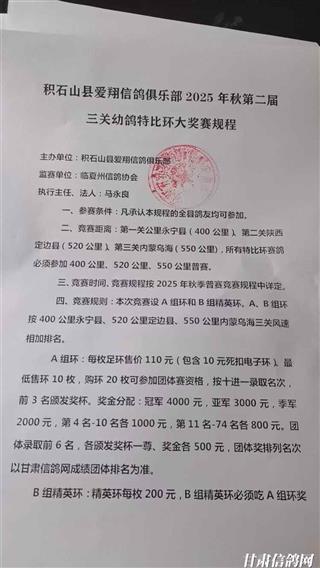 积石山县爱翔信鸽俱乐部 2025 年秋第二届
三关幼鸽特比环大奖赛规程
主办单位：积石山县爱翔信鸽俱乐部
监赛单位：临夏州信鸽协会
执行主任、法人：马永良
一、参赛条件：凡承认本规程的全县鸽友均可参加。
二、竞赛距离：第一关公里永宁县（400 公里）、第二关陕西
定边县（520 公里）、第三关内蒙乌海（550 公里），所有特比环赛鸽
必须参加 400 公里、520 公里、550 公里普赛。
三、竞赛时间、竞赛规程按 2025 年秋季普赛竞赛规程中详定。
四、竞赛规则：本次竞赛设 A 组环和 B 组精英环。A、B 组环
按 400 公里永宁县、520 公里定边县、550 公里内蒙乌海三关风速
相加排名。
A 组环：每枚足环售价 110 元（包含 10 元死扣电子环）。最
低售环 10 枚，购环 20 枚可参加团体赛资格，按十进一录取名次，
前 3 名颁发奖杯。奖金分配：冠军 4000 元，亚军 3000 元，季军
2000 元，第 4 名-10 名各 1000 元，第 11 名-74 名各 800 元。团
体录取前 6 名，各颁发奖杯一尊、奖金各 500 元，团体奖排列名次
以甘肃信鸽网成绩团体排名为准。
B 组精英环：精英环每枚 200 元，B 组精英环必须吃 A 组环奖
甘肃信鸽网